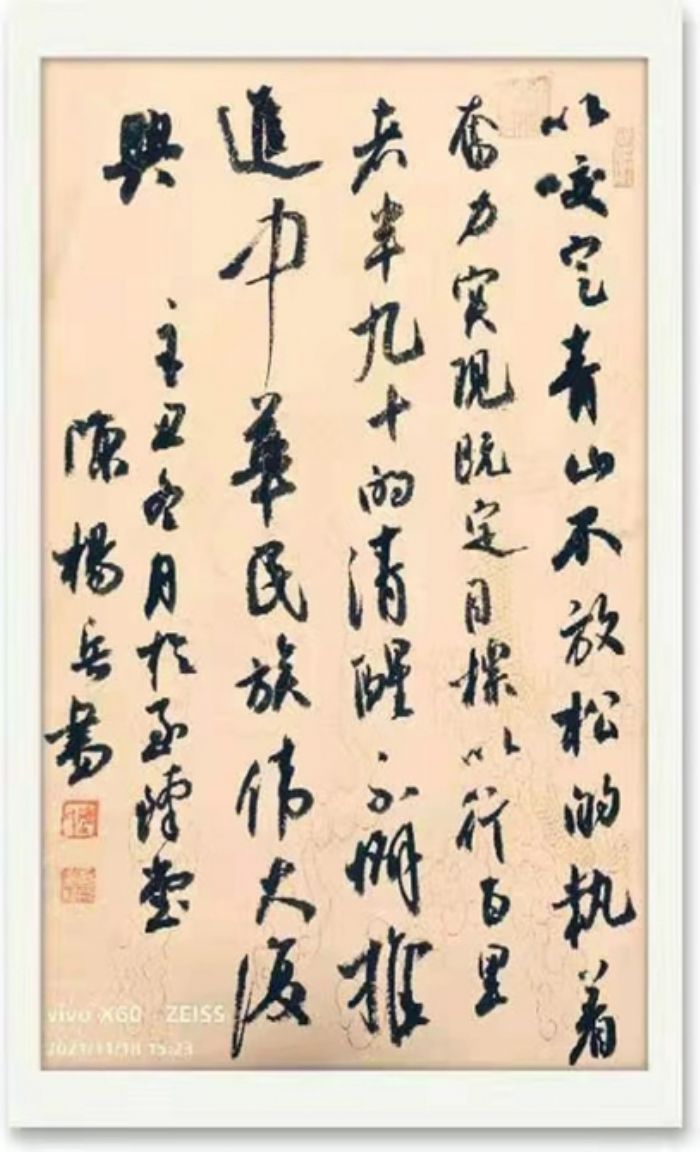 以咬定青山不放松的执着
奋力实现既定目标以行百里
者半九十的清醒不懈推
进中华民族伟大复
興
辛丑冬月於
陳楊岳書
vivo X60 ZEISS
2021/11/18 15:23